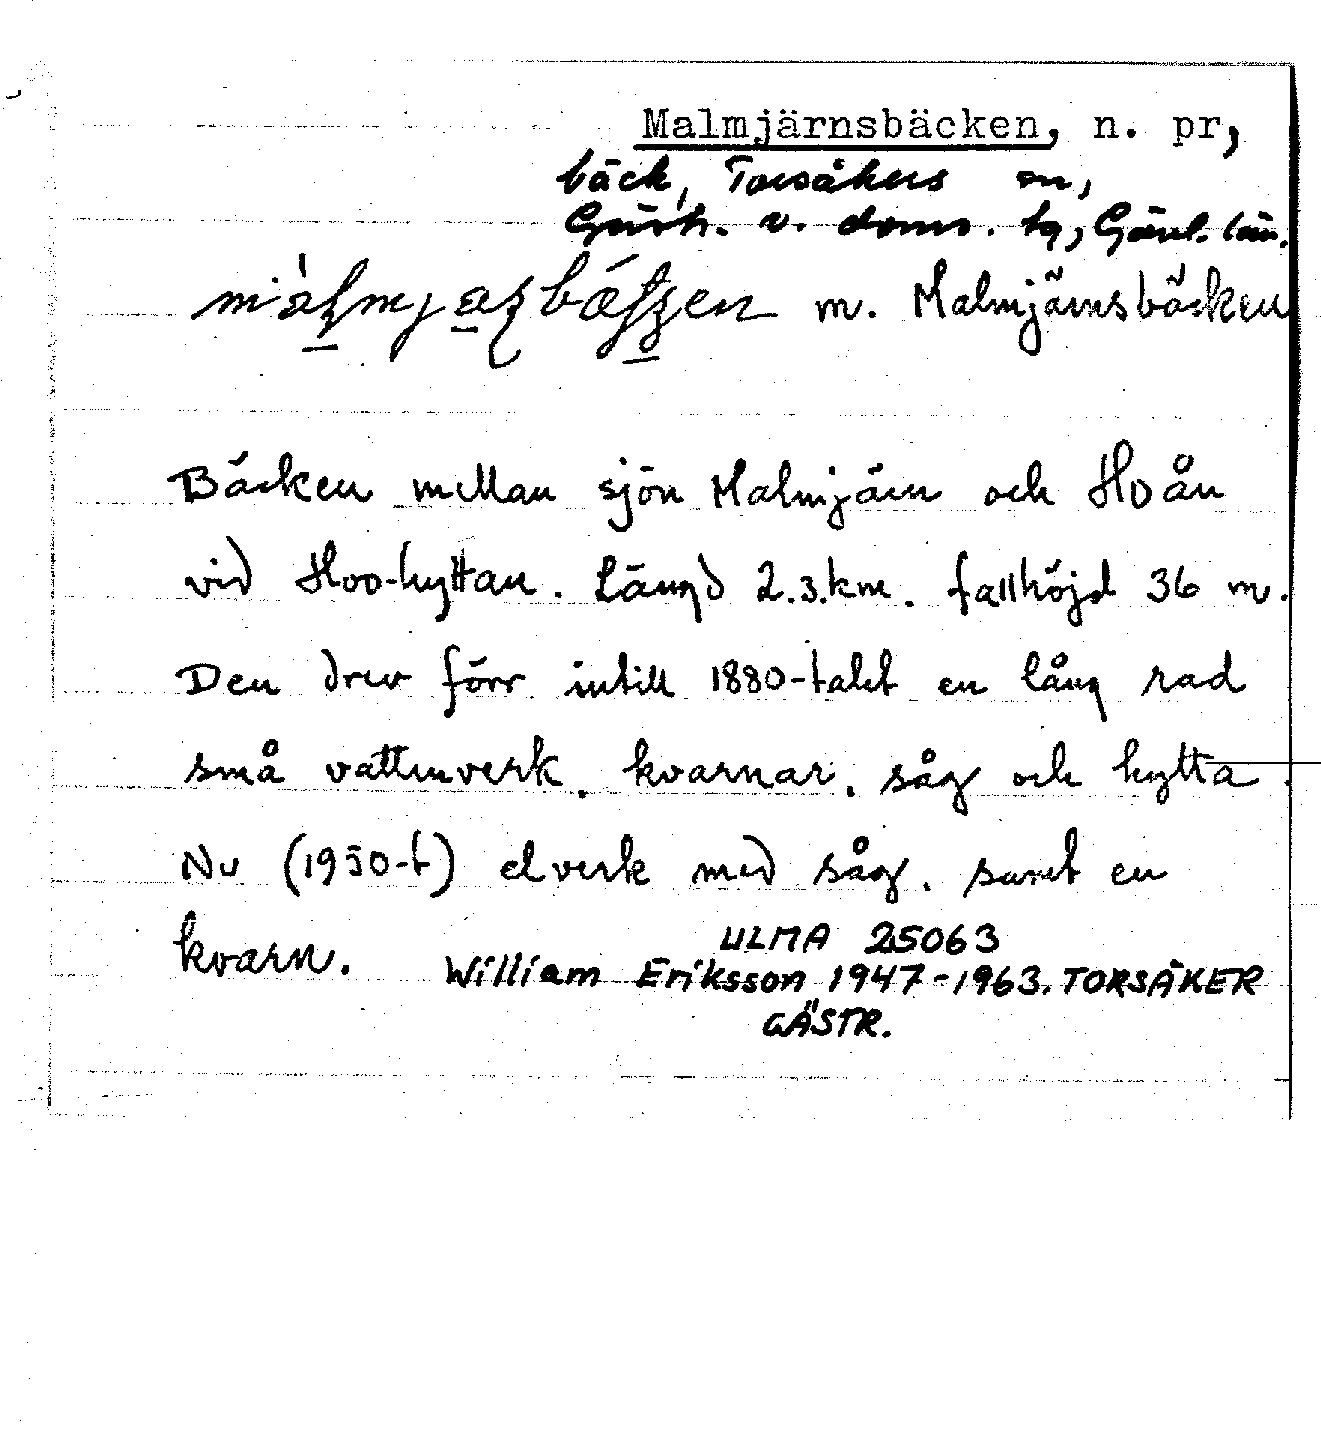 Malmjärnsbäcken, n. pr,
bäck, Torsåkers sn,
Gästr. v. doms. tg, Gävl. län.
m. Malmjärnsbäcken
Bäcken mellan sjön Malmjärn och Hoån
vid Hoo-hyttan. Längd 2.3.km. fallhöjd 36 m.
Den drev förr intill 1880-talet en lång rad
små vattenverk, kvarnar, såg och hytta.
Nu (1950-t) elverk med såg, samt en
kvarn.
ULMA 25063
William Eriksson 1947-1963. TORSÅKER
GÄSTR.